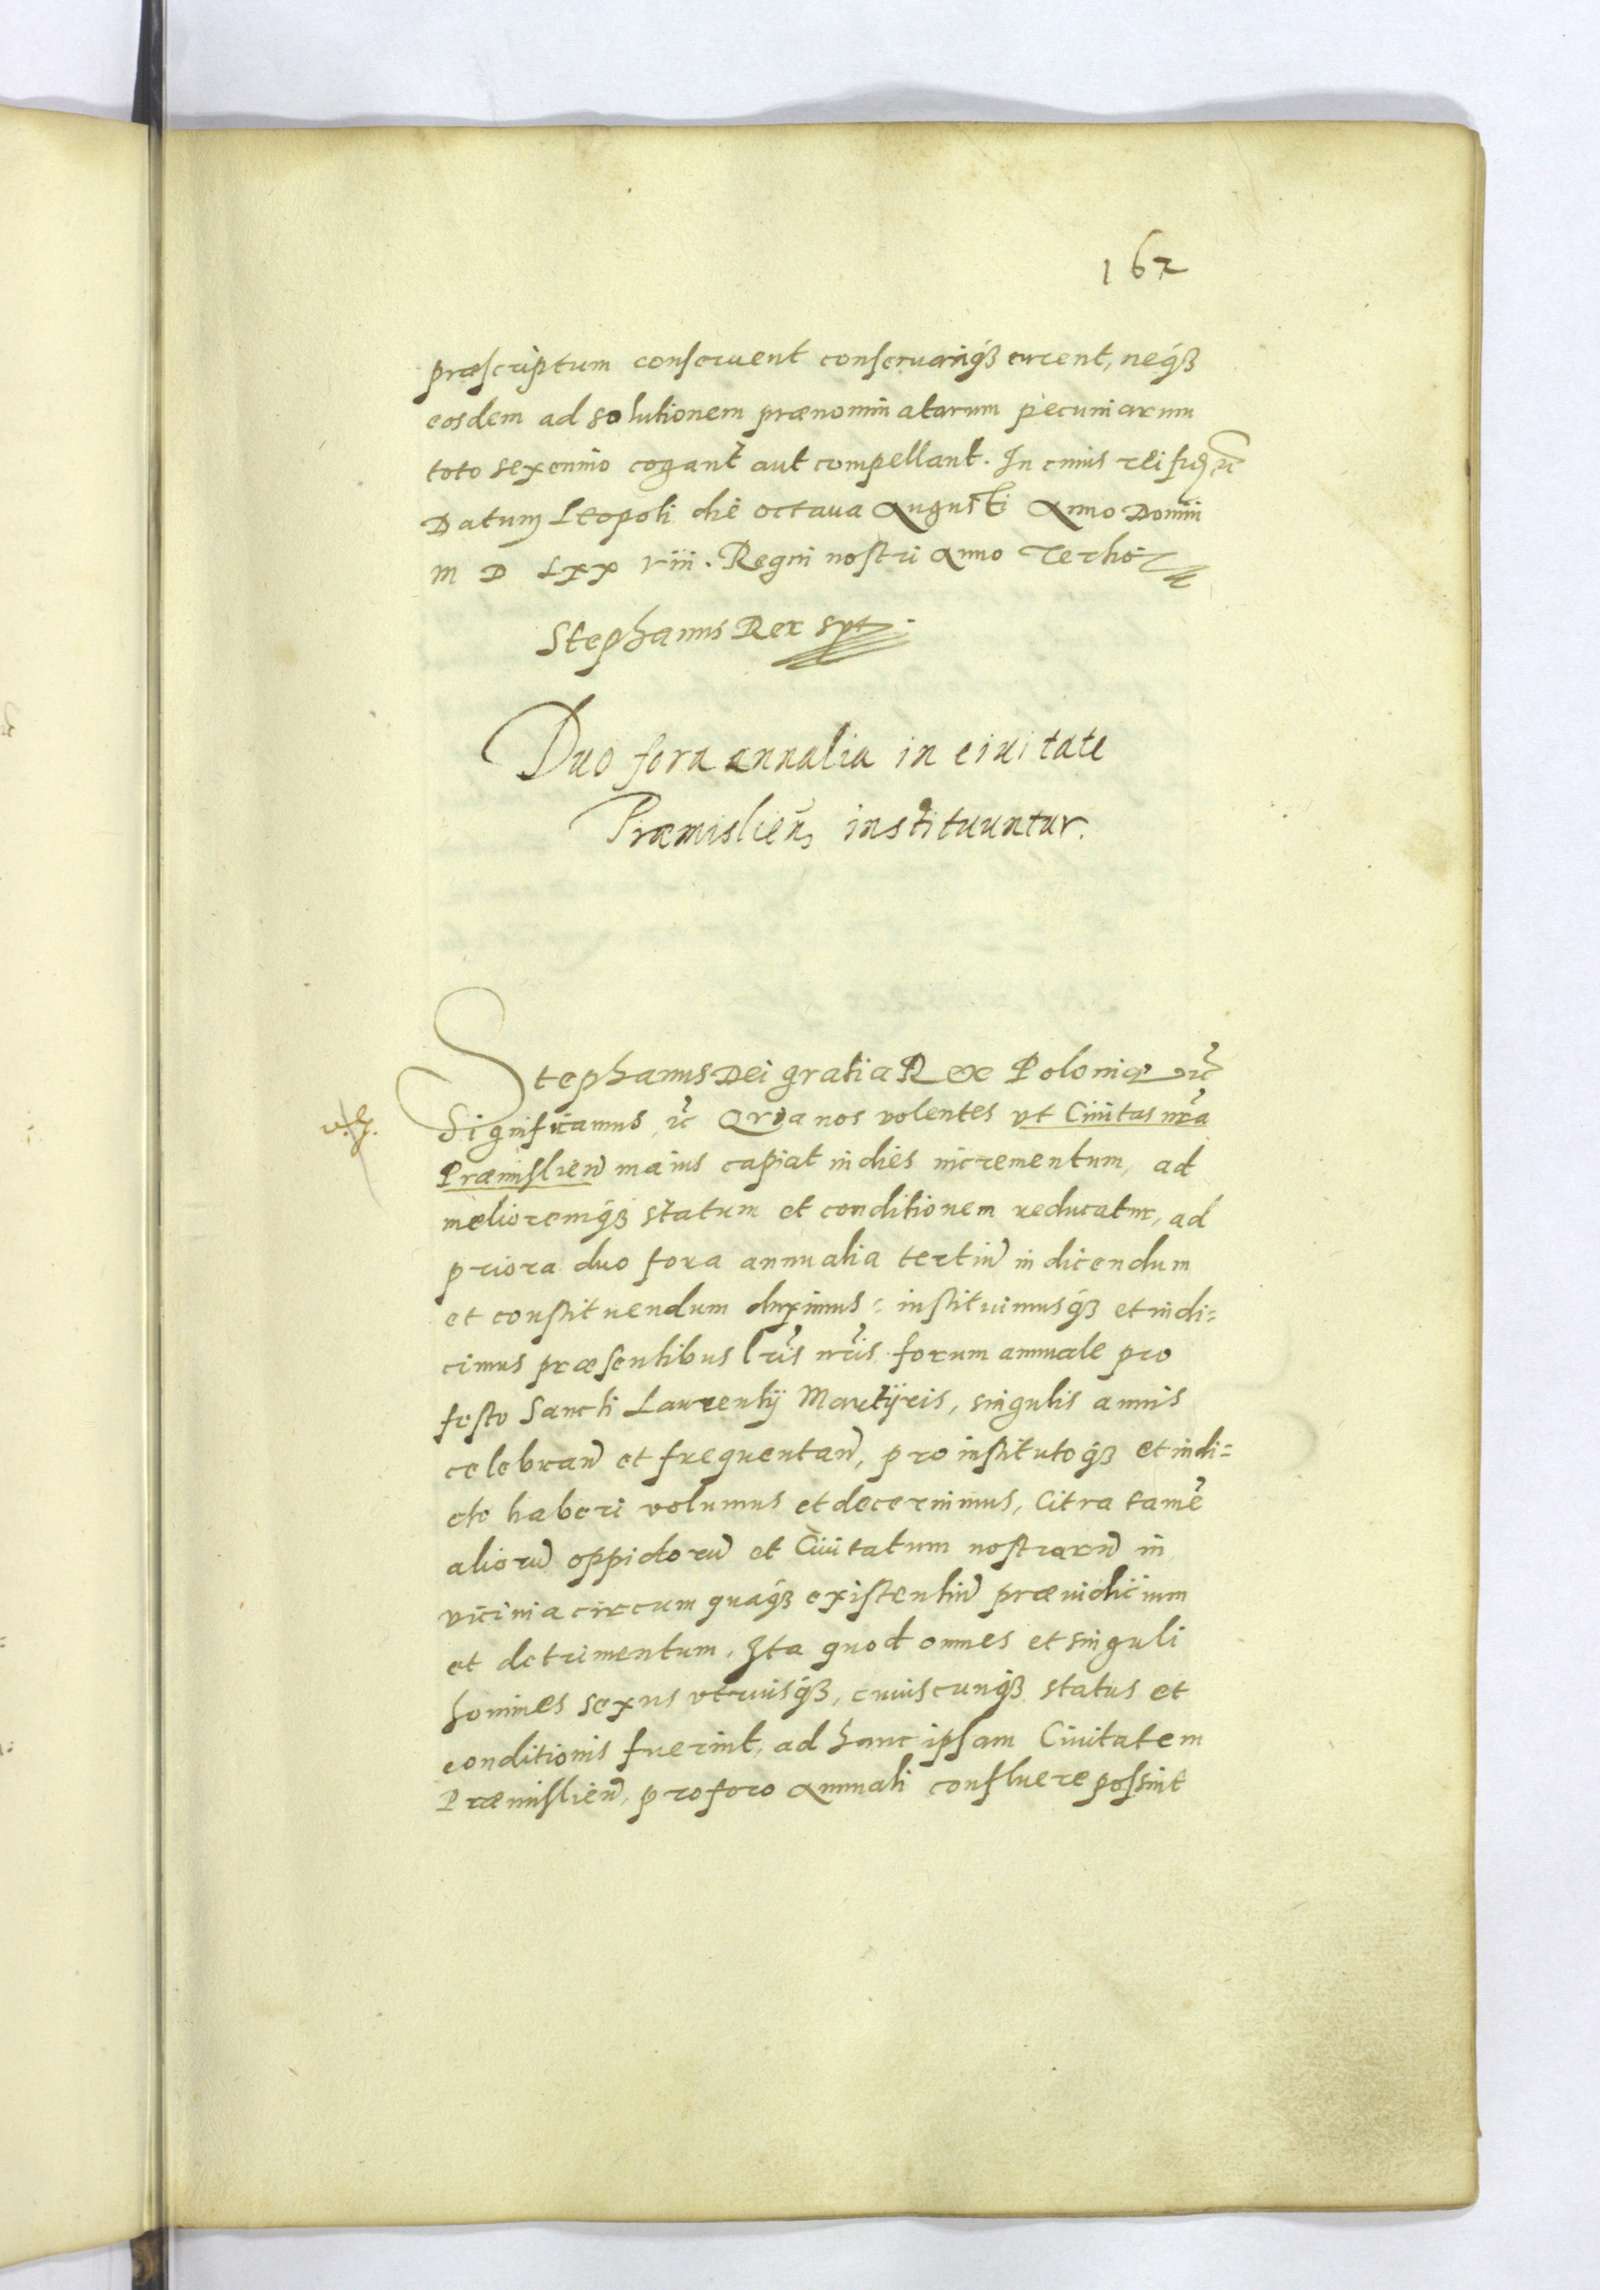 162
præscriptum conseruent conseruariq́ꝫ curent, neq́ꝫ
eosdem ad solutionem prænominatarum pecuniarum
toto sexennio cogant aut compellant. In cuius rei
Datum Leopoli die octaua Augusti Anno Domini
M D LXX Viii. Regni nostri Anno Tertio
Stephanus Rex spt.
Duo fora annalia in ciuitate
Præmislien̄ instituuntur.
Stephanus Dei gratia Rex Poloniæ ꝛc̃
Significamus ꝛc̃ Quia nos volentes vt Ciuitas nr̃a
Præmislien̄ maius capiat indies incrementum, ad
melioremq́ꝫ statum et conditionem reducatur, ad
priora duo fora annualia tertiū indicendum
et constituendum duximus: instituimusq́ꝫ et indi=
cimus præsentibus lr̃is nr̃is forum annuale pro
festo Sancti Laurentij Martÿris, singulis annis
celebran̄ et frequentan̄, pro institutoq́ꝫ et indi=
cto haberi volumus et decernimus, Citra tamē
aliorū oppidorū et Ciuitatum nostrarū in
vicinia circumquaq́ꝫ existentiū præiudicium
et detrimentum. Ita quod omnes et singuli
homines sexus vtriusq́ꝫ, cuiuscunq́ꝫ status et
conditionis fuerint, ad hanc ipsam Ciuitatem
Præmislien̄, pro foro Annuali confluere possint